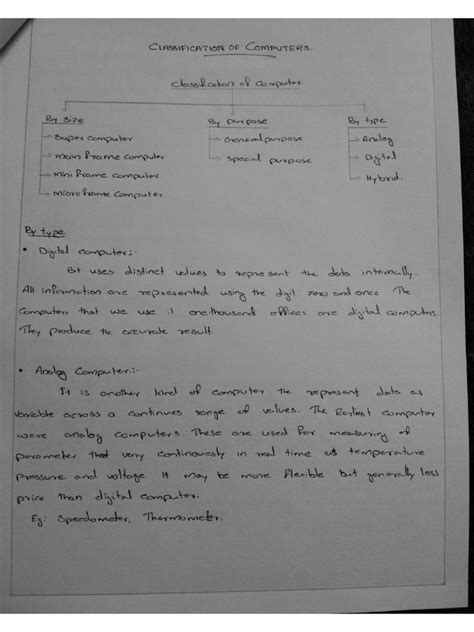 CLASSIFICATION OF COMPUTERS.
Classification of Computer
By Size By purpose By type
Super computer General purpose Analog
Main frame Computer Special purpose Digital
Mini frame Computer Hybrid.
Micro frame Computer
By type
• Digital computer:-
uses distinct values to represent the data internally.
All information are represented using the digit zero and once The
Computer that we use one thousand offices are digital computers.
They produce the accurate result.
• Analog Computer:-
It is another kind of computer the represent data as
variable across a continues range of values. The Earliest computer
were analog computers. These are used for measuring of
parameter that very continuously in real time as temperature
pressure and voltage It may be more flexible but generally less
price than digital computer.
Eg: Speedometer, Thermometer.